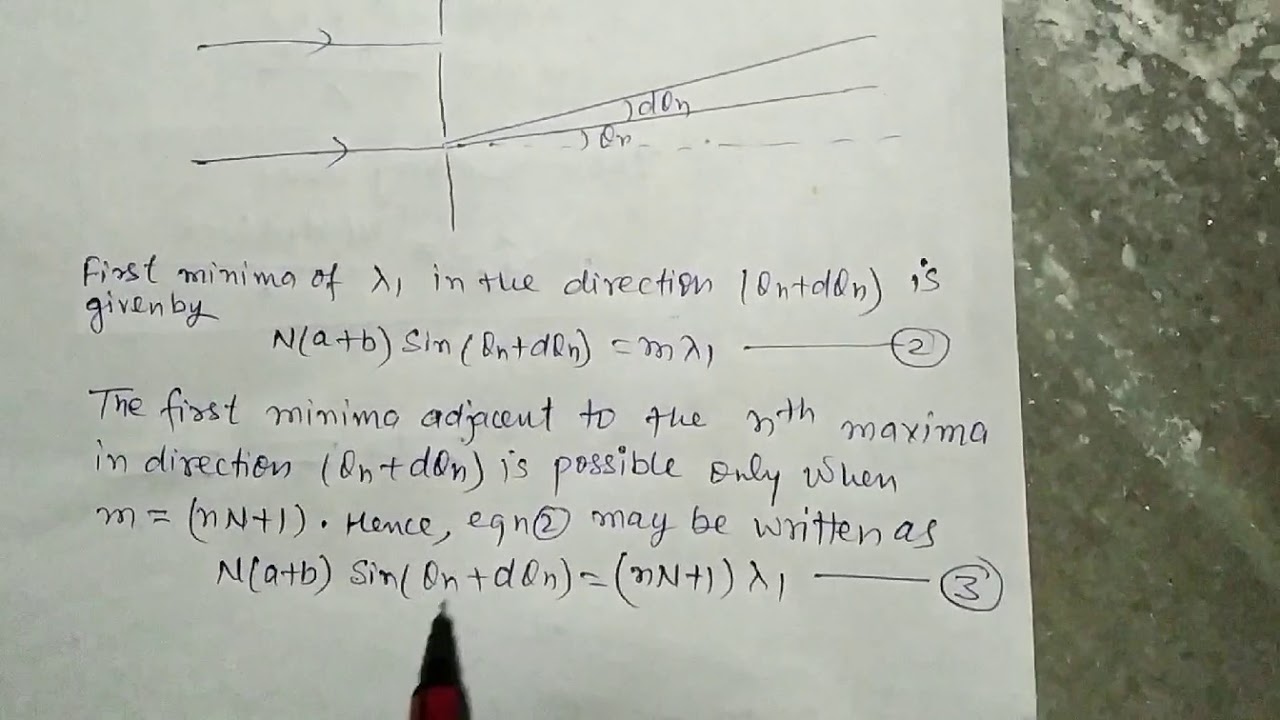 dθn
θn
First minima of λ1 in the direction (θn+dθn) is
given by
N(a+b) Sin(θn+dθn) = mλ1 ②
The first minima adjacent to the nth maxima
in direction (θn+dθn) is possible only when
m = (nN+1). Hence, eqn② may be written as
N(a+b) Sin(θn+dθn) = (nN+1) λ1 ③